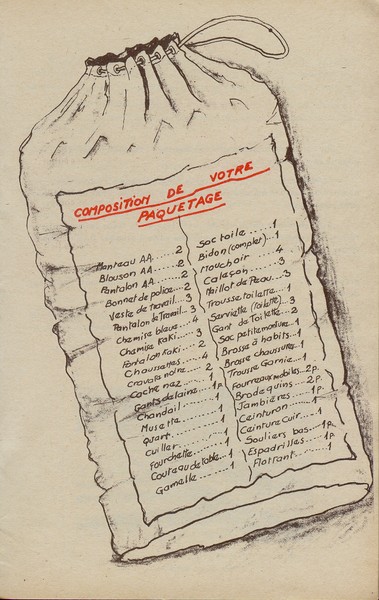 COMPOSITION DE VOTRE
PAQUETAGE
Manteau AA......2
Blouson AA......2
Pantalon AA.....2
Bonnet de police...2
Veste de Travail...3
Pantalon de Travail..3
Chemise bleue....4
Chemise Kaki.....3
Pantalon Kaki....2
Chaussettes......4
Cravate noire....2
Cache nez.......1
Gants de laine...1p
Chandail........1
Musette........1
Quart.........1
Cuiller........1
Fourchette......1
Couteau de table...1
Gamelle........1
Sac toile.....1
Bidon (complet)..1
Mouchoir.....4
Caleçon......3
Maillot de Peau...3
Trousse toilette...1
Serviette (Toilette)..3
Gant de Toilette...2
Sac petite monture..1
Brosse à habits...1
Brosse chaussures..1
Trousse Garnie...1
Fourreaux mobiles..2p
Brodequins.....2p
Jambières.....1p
Ceinturon.....1
Ceinture Cuir...1
Souliers bas....1p
Espadrilles....1p
Flottant......1